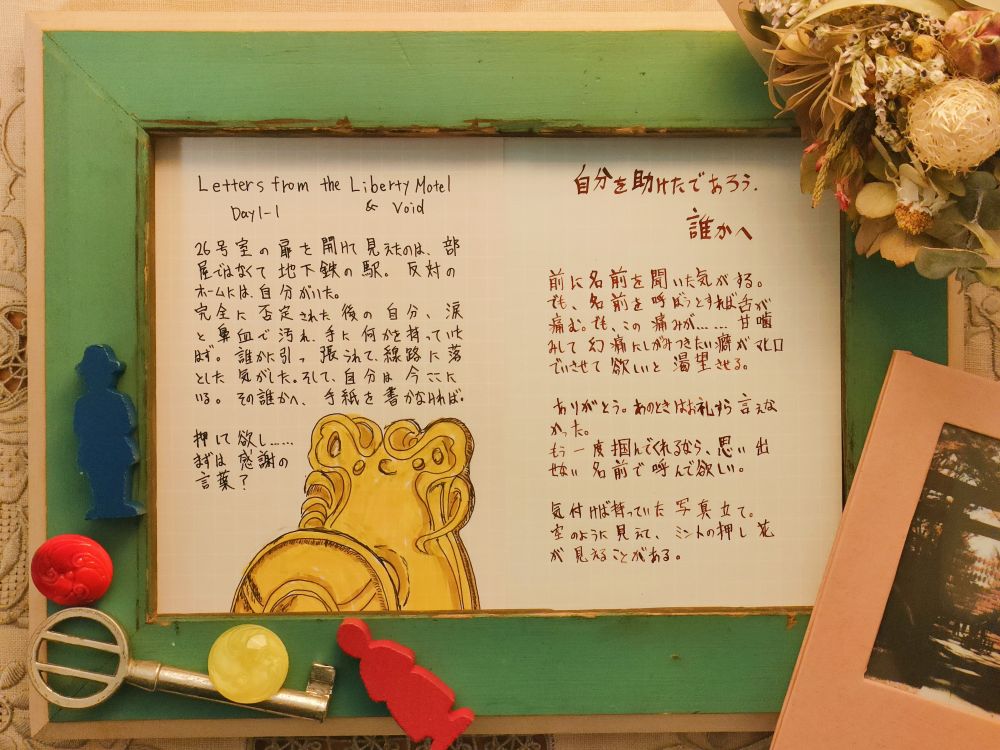 Letters from the Liberty Motel
& Void
Day1-1
26号室の扉を開けて見えたのは、部
屋ではなくて地下鉄の駅。反対の
ホームには、自分がいた。
完全に否定された後の自分、涙
と鼻血で汚れ、手に何かを持っていた
はず。誰かに引っ張られて、線路に落
とした気がした。そして、自分は今ここに
いる。その誰かへ、手紙を書かなければ。
押して欲し……
まずは感謝の
言葉？
自分を助けたであろう、
誰かへ
前に名前を聞いた気がする。
でも、名前を呼ぼうとすれば舌が
痛む。でも、この痛みが……甘噛
みして幻痛にしがみつきたい癖がマヒロ
でいさせて欲しいと渇望させる。
ありがとう。あのときはお礼すら言えな
かった。
もう一度掴んでくれるなら、思い出
せない名前で呼んで欲しい。
気付けば持っていた写真立て。
空のように見えて、ミントの押し花
が見えることがある。